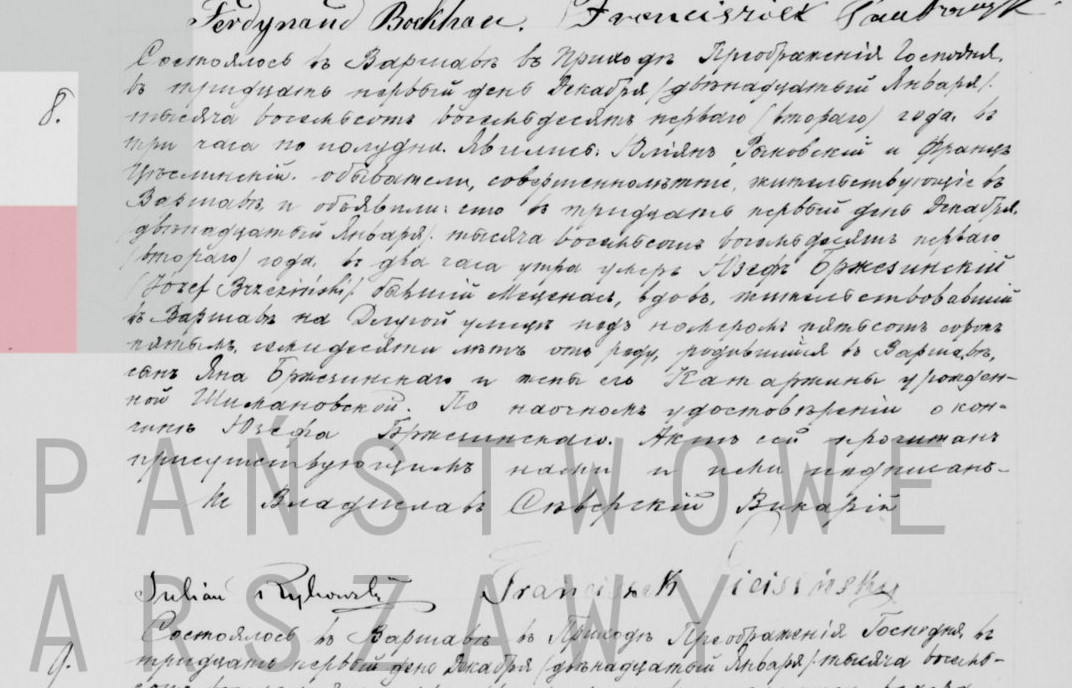 Ferdynand Bockhan. Franciszek
Состоялось въ Варшавѣ въ Приходѣ Преображенія Господня,
8.
въ тридцать первый день Декабря /двѣнадцатый Января/.
тысяча восемьсотъ восемьдесятъ перваго /втораго/ года, въ
три часа по полудни. Явились: Юліянъ Рыковскій и Францъ
обыватели, совершеннолѣтніе, жительствующіе въ
Варшавѣ, и объявили: что въ тридцать первый день Декабря,
/двѣнадцатый Января/. тысяча восемьсотъ восемьдесятъ перваго
/втораго/ года, въ два часа утра умеръ Юзефъ Бржезинскій
/Józef Brzeziński/ бывшій Меценасъ, вдовъ, жительствовавшій
въ Варшавѣ на Длугой улицѣ подъ номеромъ пятьсотъ сорокъ
пятымъ, семидесяти лѣтъ отъ роду, родившійся въ Варшавѣ,
сынъ Яна Бржезинскаго и жены его Катаржины урожден-
ной Шимановской. По наочномъ удостовѣреніи о кон-
чинѣ Юзефа Бржезинскаго. Актъ сей прочитанъ
присутствующимъ нами и ими подписанъ.-
Кс Владиславъ Сѣверскій Викарій
PAŃSTWOWE
Julian Rykowski Franciszek
ARSZAWY
Состоялось въ Варшавѣ въ Приходѣ Преображенія Господня, въ
9.
тридцать первый день Декабря /двѣнадцатый Января/ тысяча восемь-